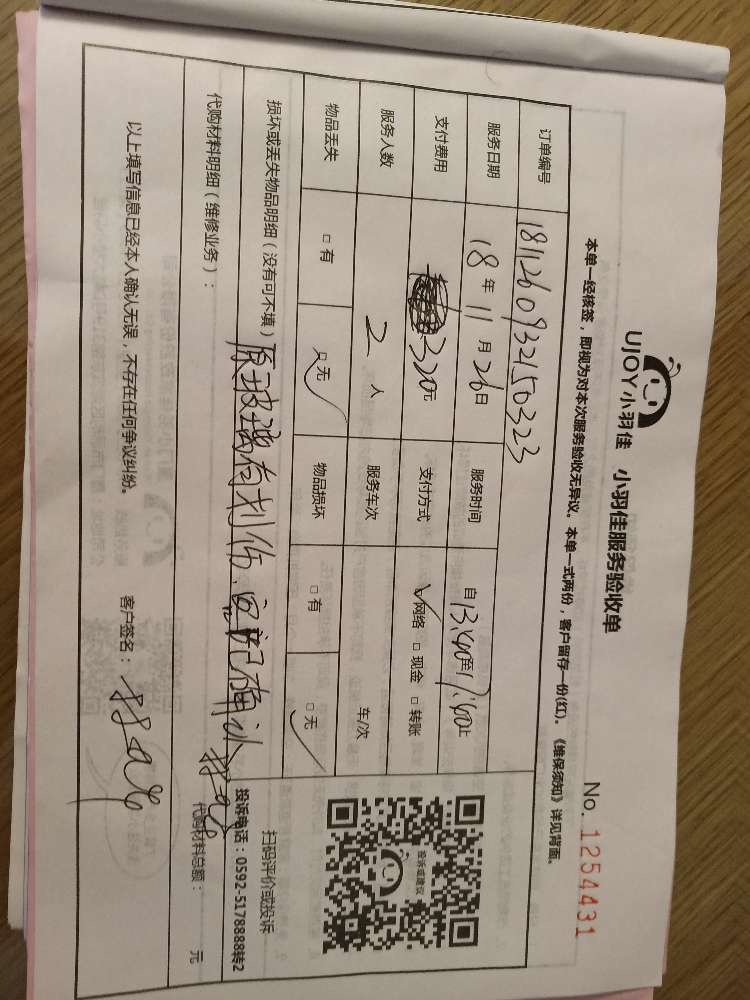 UJOY小羽佳 小羽佳服务验收单
No. 1254431
本单一经核签，即视为对本次服务验收无异议。本单一式两份，客户留存一份(红)。《维保须知》详见背面。
订单编号 1811260932150323
服务日期 18年11月26日 服务时间 自13:40至17:40止
支付费用 320元 支付方式 ☑网络 □现金 □转账
服务人数 2人 服务车次 车/次
物品丢失 □有 □无✓ 物品损坏 □有 □无✓
投诉或建议
扫码评价或投诉
投诉电话：0592-5178888转2
损坏或丢失物品明细（没有可不填）原玻璃有划伤、已和确认
代购材料明细（维修业务）：
代购材料总额： 元
以上填写信息已经本人确认无误，不存在任何争议纠纷。 客户签名：